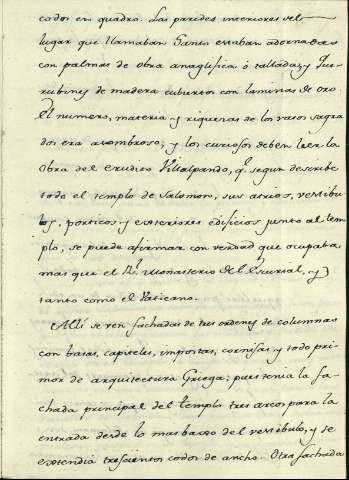 codos en quadro. Las paredes interiores del
lugar que llamaban Santo estaban adornadas
con palmas de obra anaglifica ó talladas, y Que-
rubines de madera cubiertos con laminas de oro.
El numero, materia y riquezas de los vasos sagra
dos era asombroso; y los curiosos deben leer la
Obra del erudito Villalpando, q.e segun describe
todo el templo de Salomon, sus atrios, vestibu
los, porticos y exteriores edificios junto al tem
plo, se puede afirmar con verdad que ocupaba
mas que el R.l Monasterio del Escurial, y
tanto como el Vaticano.
Allí se ven fachadas de tres ordenes de columnas
con basas, capiteles, impostas, cornisas y todo pri-
mor de arquitectura Griega; pues tenia la fa-
chada principal del templo tres arcos para la
entrada desde lo mas baxo del vestibulo, y se
extendia trescientos codos de ancho. Otra fachada